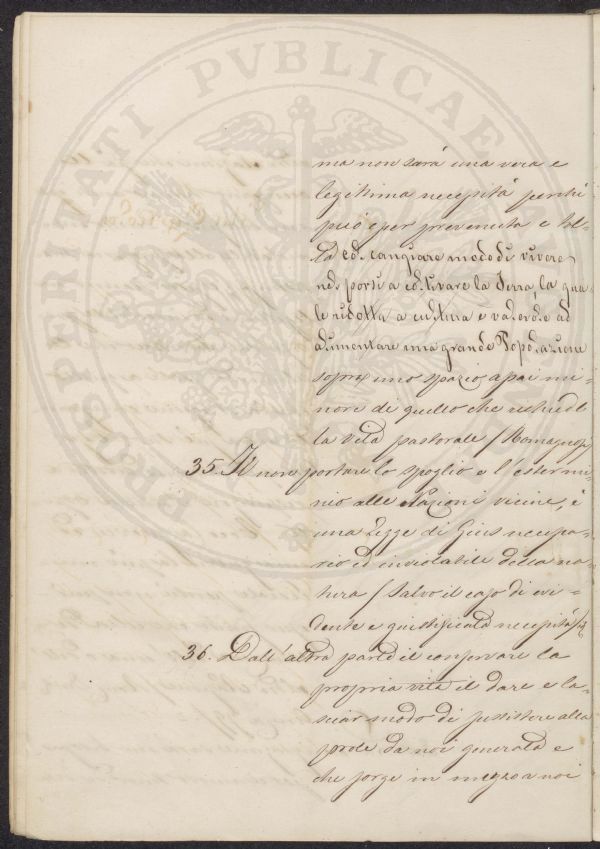 PROSPERITATI PVBLICAE
ma non sarà una vera e
legittima necessità perchè
può esser prevenuta e tol-
ta col cangiare modo di vivere
nel porsi a coltivare la Terra, la qua
le ridotta a cultura e valevole ad
alimentare una grande Popolazione
sopra uno spazio assai mi-
nore di quello che richiede
la vita pastorale (Romagnosi)
35. Il non portare lo spoglio e l'estermi-
nio alle Nazioni vicine, è
una Legge di Gius necessa-
rio ed inviolabile della na-
tura (salvo il caso di evi-
dente e giustificata necessità)
36. Dall'altra parte il conservare la
propria vita il dare e la-
sciar modo di sussistere alla
prole da noi generata e
che sorge in mezzo a noi